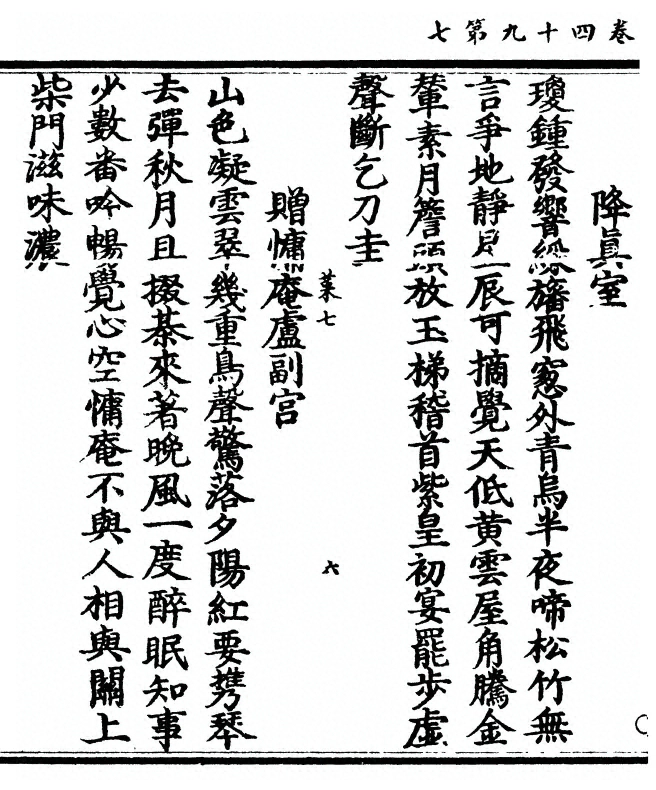 卷四十九第七
降眞室
瓊鍾發響綵旛飛窻外青鳥半夜啼松竹無
言爭地靜星辰可摘覺天低黄雲屋角騰金
輦素月簷頭放玉梯稽首紫皇初宴罷步虛
聲斷乞刀圭
菜七
六
贈慵庵盧副宫
山色凝雲翠幾重鳥聲驚落夕陽紅要携琴
去彈秋月且掇棊來著晩風一度醉眠知事
少數畨吟暢覺心空慵庵不與人相與關上
柴門滋味濃